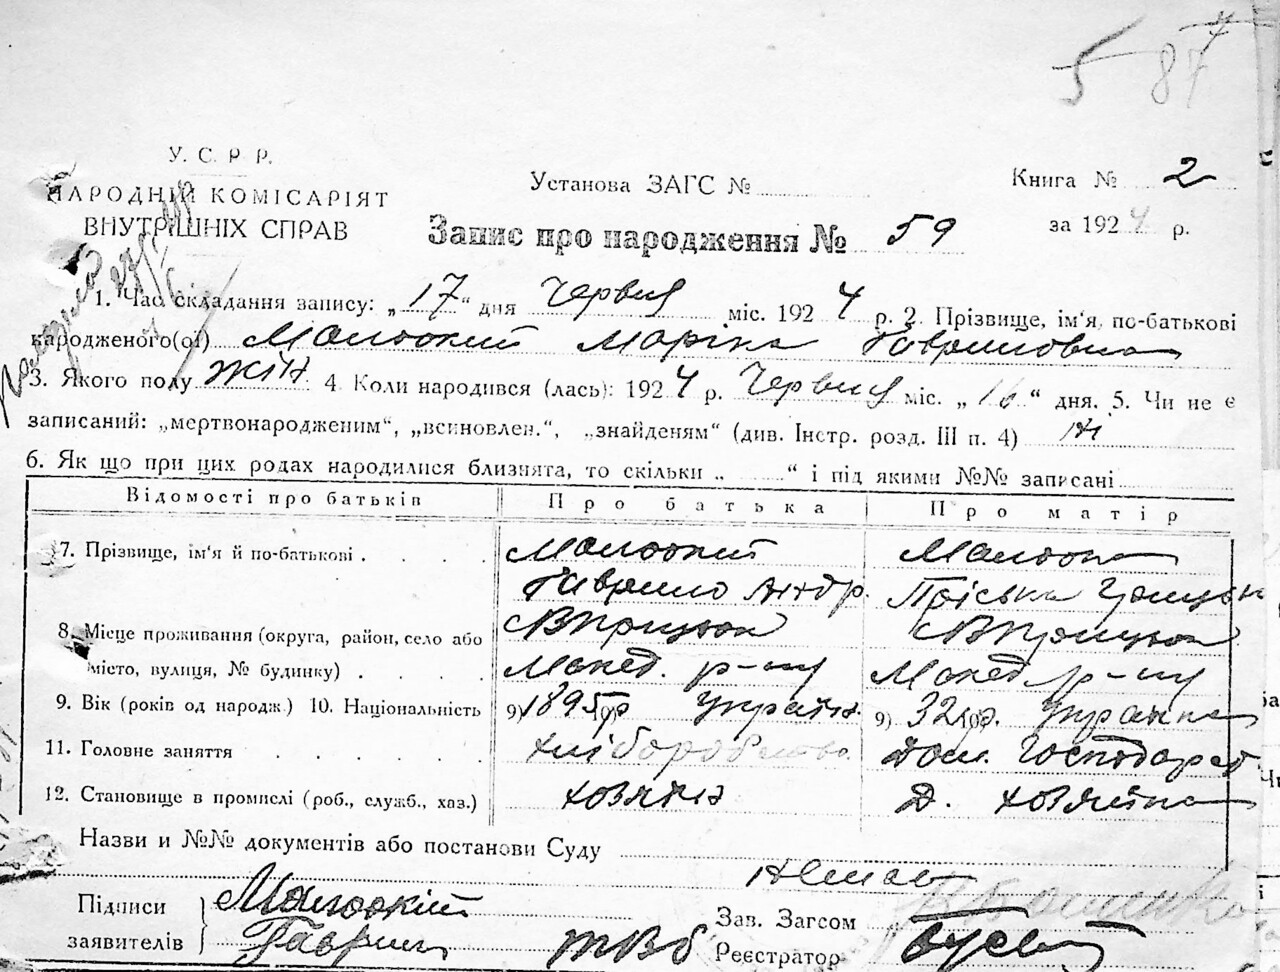 5 87
У. С. Р. Р.
НАРОДНІЙ КОМІСАРІЯТ
ВНУТРІШНІХ СПРАВ
Установа ЗАГС №
Книга № 2
за 1924 р.
Запис про народження № 59
1. Час складання запису: „17“ дня Червня міс. 1924 р. 2. Прізвище, ім'я, по-батькові
народженого(ої) Маріка Гавриловна
3. Якого полу жін 4. Коли народився (лась): 1924 р. Червня міс. „16“ дня. 5. Чи не є
записаний: „мертвонародженим“, „всиновлен.“, „знайденям“ (див. Інстр. розд. III п. 4) ні
6. Як що при цих родах народилися близнята, то скільки „ “ і під якими №№ записані
Відомості про батьків Про батька Про матір
7. Прізвище, ім'я й по-батькові
Гаврило Андр. Пріська
8. Місце проживання (округа, район, село або
місто, вулиця, № будинку) Макед. р-ну Макед. р-ну
9. Вік (років од народж.) 10. Національність 9) 1895 10) р Україн. 9) 32 10) р. Украінка
11. Головне заняття хліборобство. Дом. Господарст.
12. Становище в промислі (роб., служб., хаз.) хозяїн Д. хозяйка
Назви и №№ документів або постанови Суду
Немає
Підписи
заявителів Гаврил
Зав. Загсом
Реєстратор